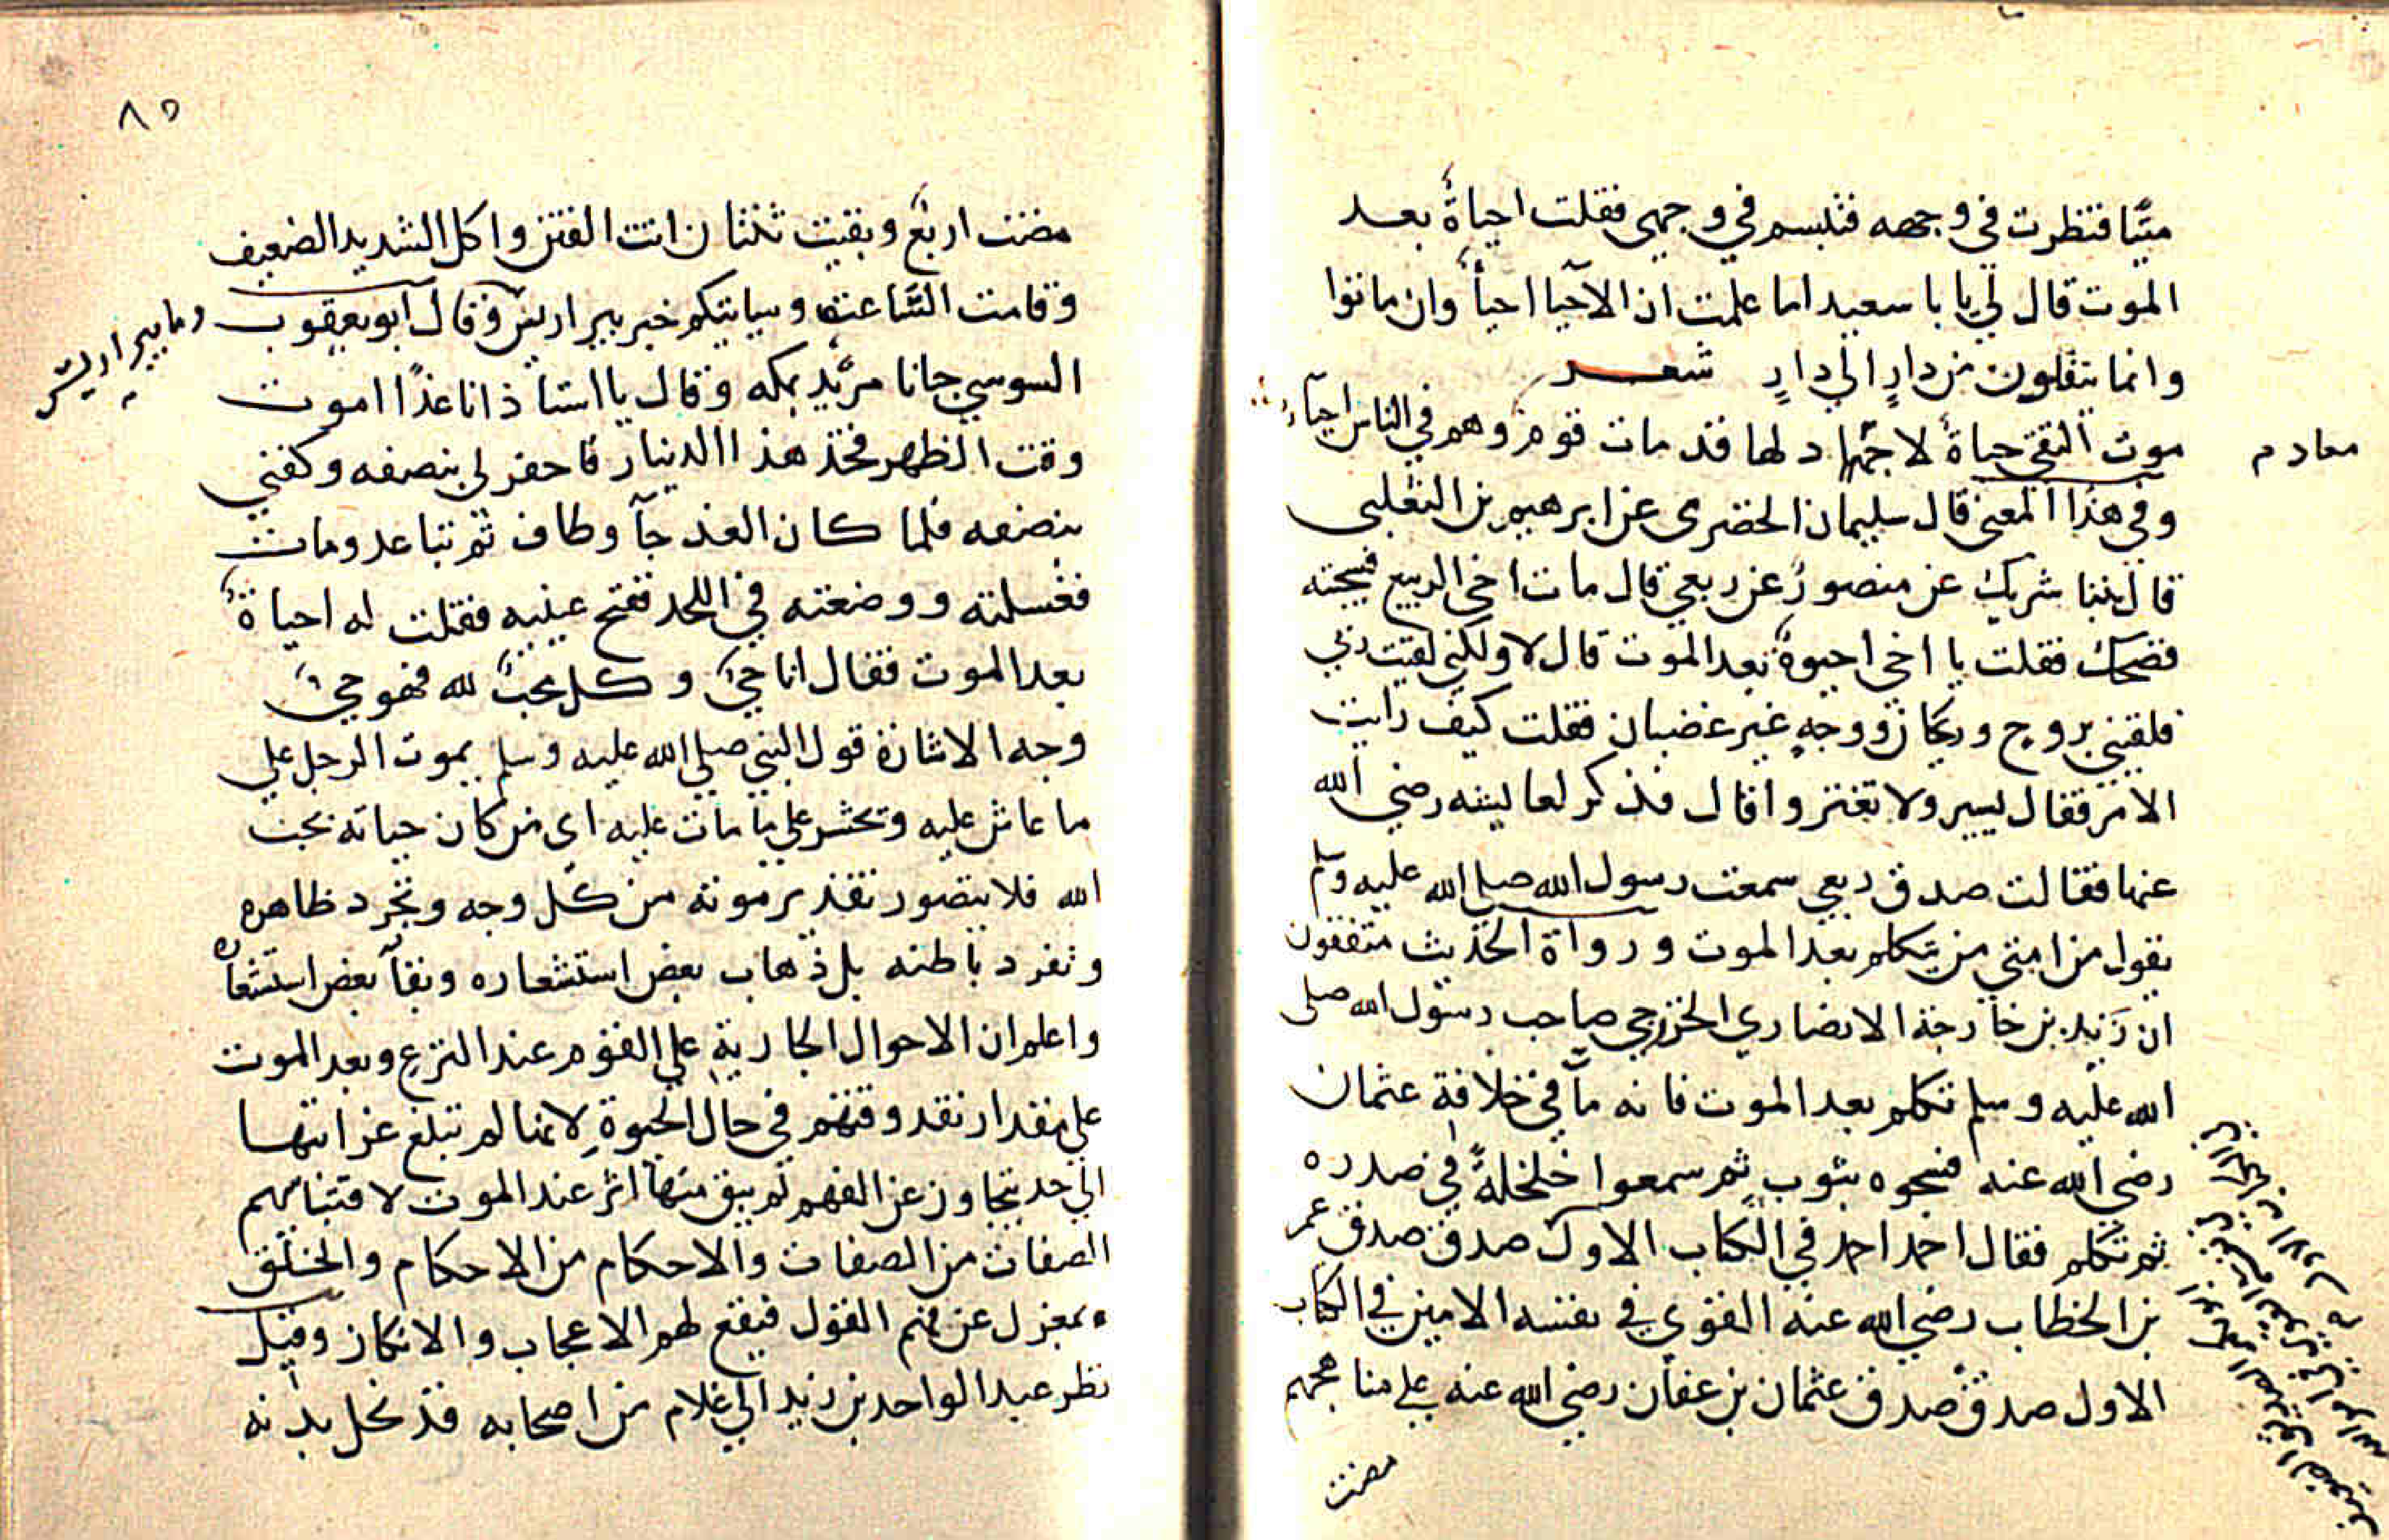 ميتا فنظرت في وجهه فتبسم في وجهي فقلت احياةٌ بعد
الموت قال لي يا با سعيد اما علمت ان الاحيا احيأ وان ماتوا
وانما ينقلون من دارٍ الي دارٍ شعــر
موت التقي حياة لا دلها قد مات قوم وهم في الناس احيآء
معاد م
وفي هذا المعني قال سليمان الحضرى عن ابرهيم بن الثعلبى
قال ثنا شريك عن منصور عن ربعي قال مات اخي الربيع فسجيته
فضحك فقلت يا اخي احيوةٌ بعد الموت قال لا ولكني لقيت ربي
فلقيني بروح وريحان ووجهٍ غير غضبان فقلت كيف رايت
الامر فقال يسير ولا تغتروا قال فذكر لعايشه رضي الله
عنها فقالت صدق ربعي سمعت رسول الله صلي الله عليه وسلم
يقول من امتي من يتكلم بعد الموت ورواة الحديث متفقون
ان زيد بن خارجة الانصاري الخزرجي صاحب رسول الله صلى
الله عليه وسلم تكلم بعد الموت فانه مآ في خلافة عثمان
رضي الله عنه فسجوه بثوب ثم سمعوا خلخلةً في صدره
ثم تكلم فقال احمد احمد في الكتاب الاول صدق صدق عمر
بن الخطاب رضي الله عنه القوي في نفسه الامين في الكتاب
الاول صدق صدق عثمان بن عفان رضي الله عنه على منهاجهم
مضت
٨٥
مضت اربع وبقيت ثنتان اتت الفتن واكل الشديد الضعيف
وقامت السَّاعة وسياتيكم خبر بير اريس وقال ابو يعقوب
وما بير اريس
السوسي جانا مريد بمكه وقال يا استاذ انا غدًا اموت
وقت الظهر فخذ هذا الدينار فاحفر لي بنصفه وكفني
بنصفه فلما كان الغد جآ وطاف ثم تباعد ومات
فغسلته ووضعته في اللحد ففتح عينيه فقلت له احياةٌ
بعد الموت فقال انا حيٌ وكل محبٌ لله فهو حيٌ
وجه الاشارة قول النبي صلي الله عليه وسلم يموت الرجل علي
ما عاش عليه وتحشر علي ما مات عليه اى من كان حياته بحب
الله فلا يتصور تقدير موته من كل وجه وتجرد ظاهره
وتفرد باطنه بل ذهاب بعض استشعاره وبقآ بعض استشعاره
واعلم ان الاحوال الجارية علي القوم عند النزع وبعد الموت
علي مقدار نقد وقتهم في حال الحيوةِ لانها لم تبلغ عزانتها
الي حد يتجاوز عن الفهم لم يبق منها اثر عند الموت لا قتباسهم
الصفات من الصفات والاحكام من الاحكام والخلق
بمعزل عن فهم القول فيقع لهم الاعجاب والانكار وقيل
نظر عبد الواحد بن زيد الي غلام من اصحابه قد نحل بدنه